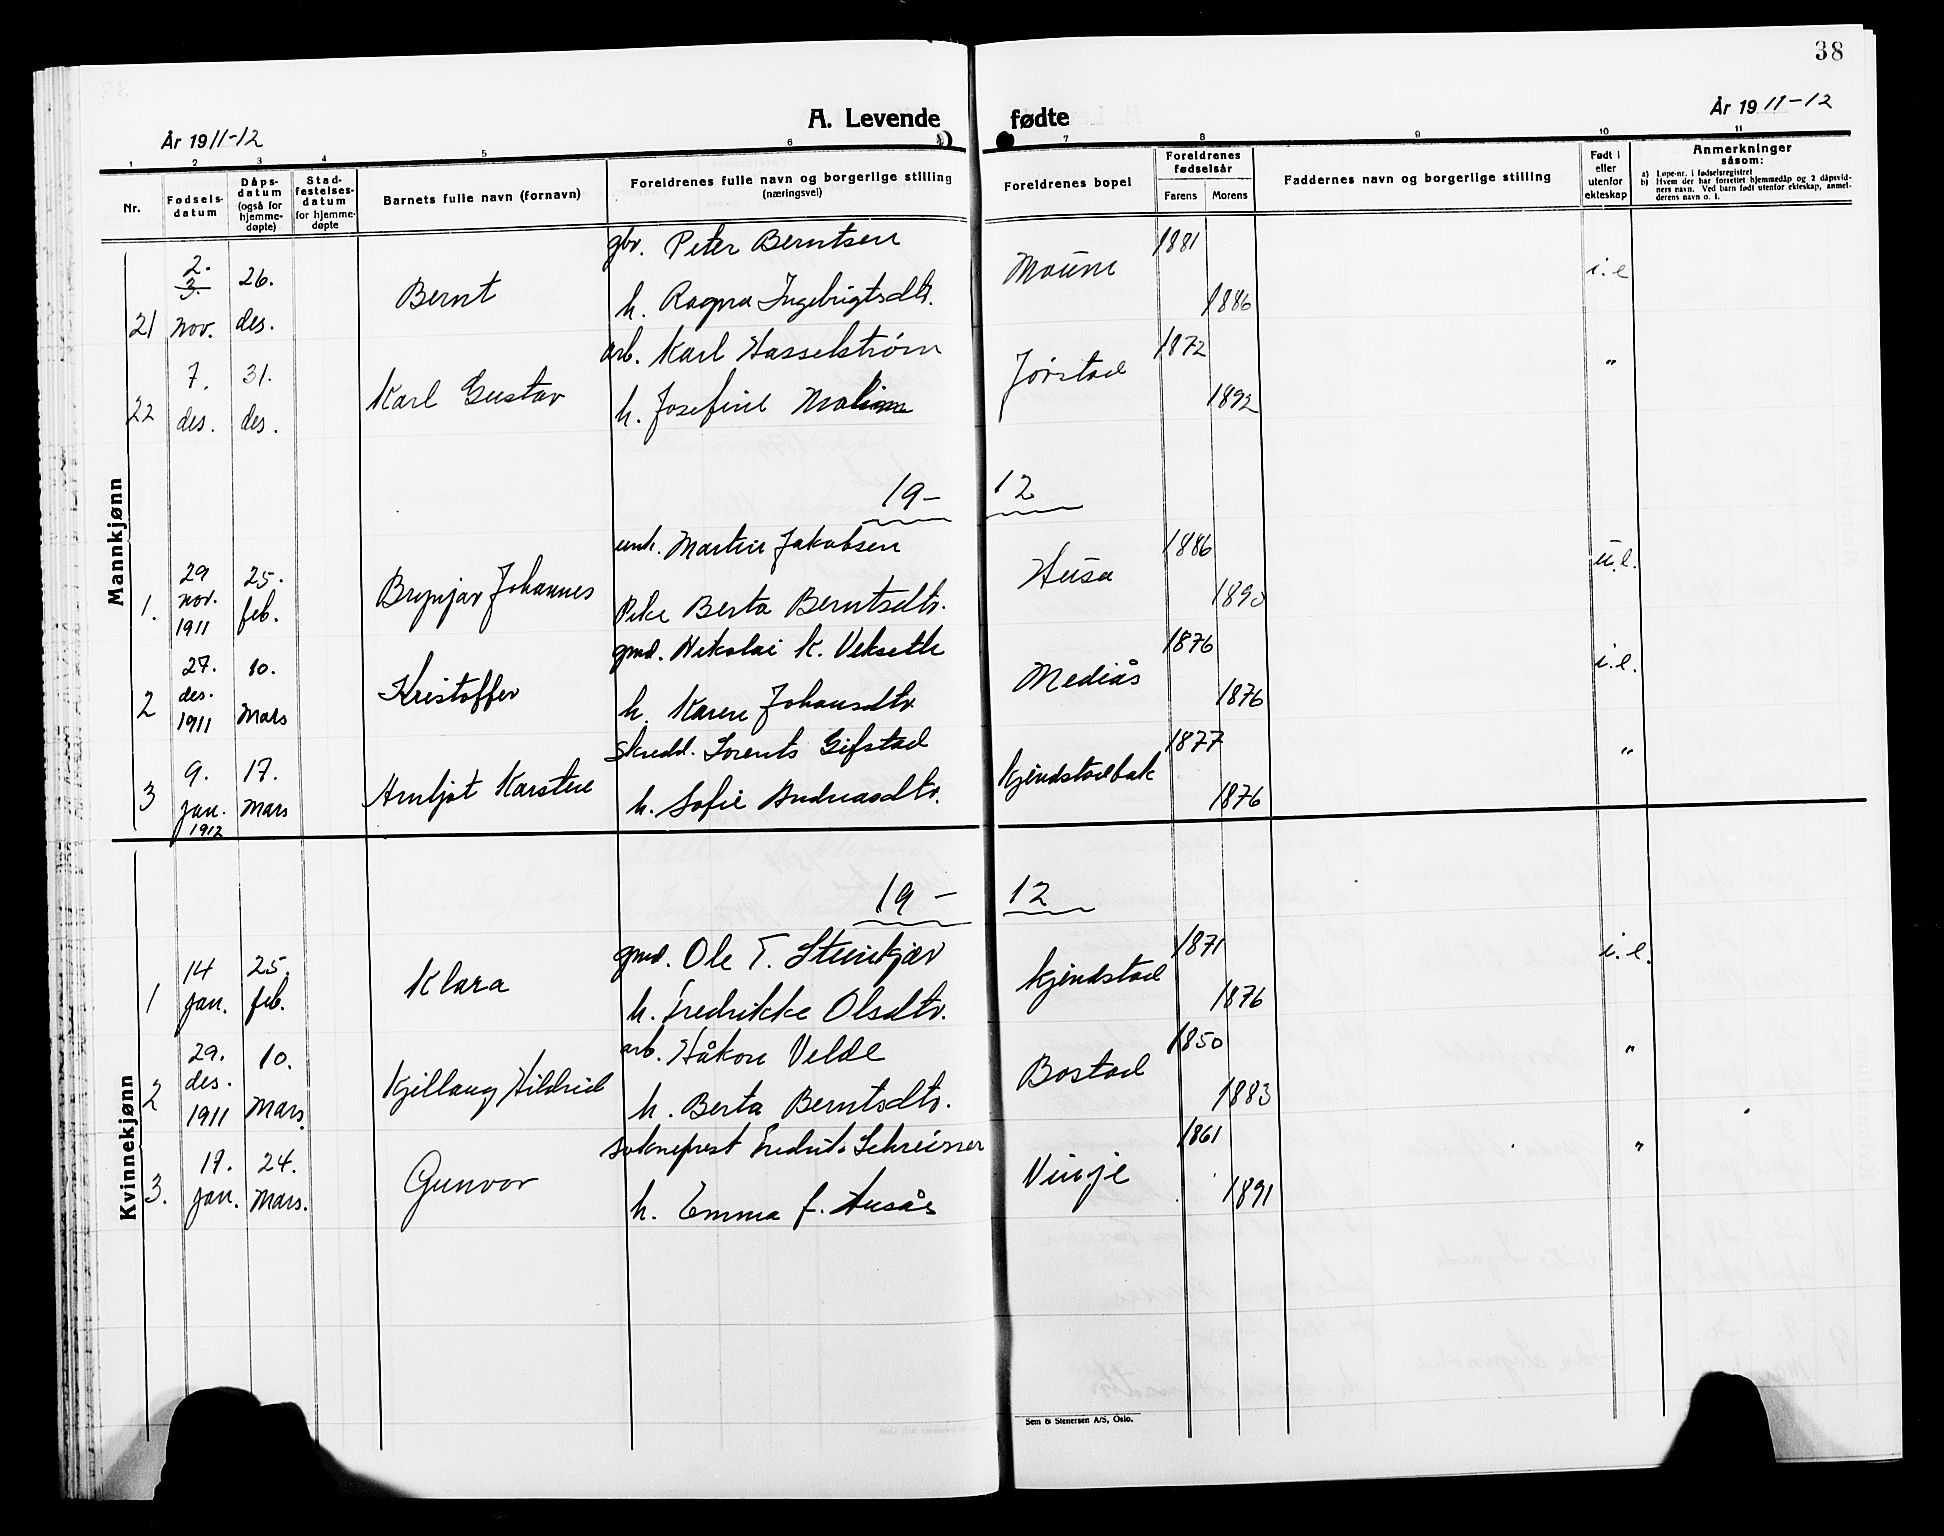 38
A. Levende fødte
År 1911-12
År 1911-12
1 2 3 4 5 6 7 8 9 10 11
Nr.
Fødsels-datum
Dåps-datum (også for hjemme-døpte)
Stad-festelses-datum for hjemme-døpte
Barnets fulle navn (fornavn)
Foreldrenes fulle navn og borgerlige stilling (næringsvei)
Foreldrenes bopel
Foreldrenes fødselsår
Farens Morens
Faddernes navn og borgerlige stilling
Født i eller utenfor ekteskap
Anmerkninger såsom:
a) Løpe-nr. i fødselsregistret
b) Hvem der har forrettet hjemmedåp og 2 dåpsvid-
ners navn. Ved barn født utenfor ekteskap, anmel-
derens navn o. l.
Mannkjønn
21 2./3. nov. 26. des. Bernt gbr. Peter Berntsen Moum 1881 i.e
h. Ragna Ingebrigtsdtr. 1886
22 7. des. 31. des. Karl Gustav arb. Karl Hasselstrøm Jørstad 1872 "
h. Josefine Malina 1892
19- 12
1. 29 nov. 1911 25. feb. Brynjar Johannes unk. Martin Jakobsen Husa 1886 u.e.
Pike Berta Berntsdtr. 1890
2 27. des. 1911 10. Mars Kristoffer gmd. Nikolai K. Veksetle Mediås 1876 i.e.
h. Karen Johansdtr 1876
3 9. jan. 1912 17. Mars Arnljot Karsten Skredd. Lorents Gifstad Kjendstadbak 1877 "
h. Sofie Andreasdtr. 1876
Kvinnekjønn
19 - 12
1 14 jan. 25. feb. Klara gmd. Ole T. Steinkjær Kjendstad 1871 i.e.
h. Fredrikke Olsdtr. 1876
2 29. des. 1911 10. Mars. Kjellaug Hildrid arb. Håkon Velde Bostad 1850 "
h. Berta Berntsdtr. 1883
3. 17. jan. 24. Mars. Gunvor Sokneprest Fredrik Schreiner Vinje 1861 "
h. Emma f. Ausås 1891
Sem & Stenersen A/S, Oslo.